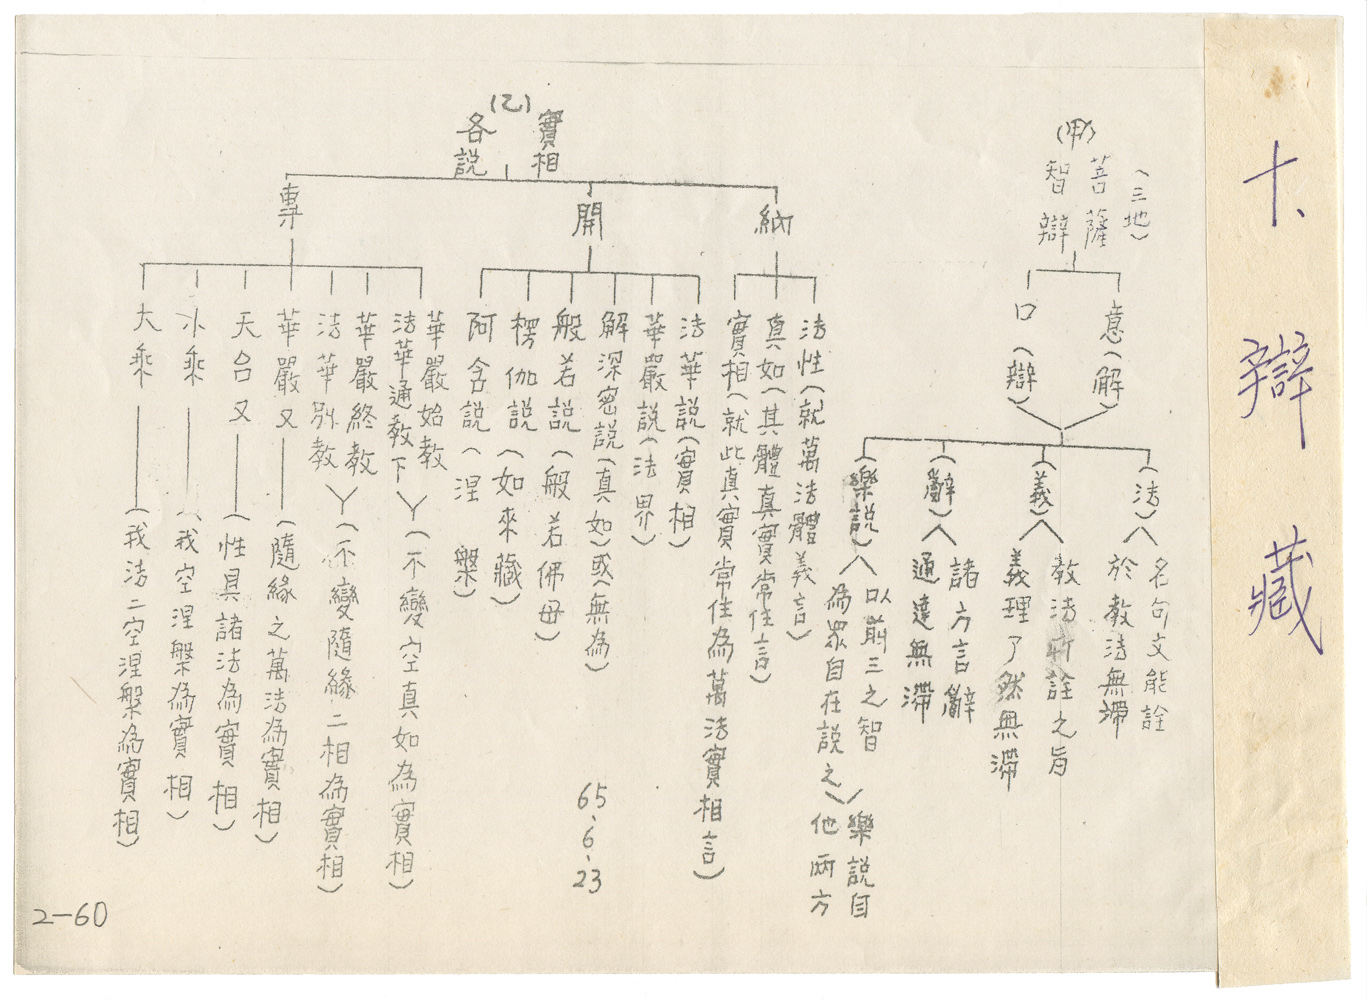 十、辯藏
(三地)
(甲)
菩薩
智辯
意(解)
口(辯)
(法)
名句文能詮
於教法無滯
(義)
教法所詮之旨
義理了然無滯
(辭)
諸方言辭
通達無滯
(樂說)
以前三之智
為眾自在說之
樂說自
他兩方
(乙)
實相
各說
納
法性(就萬法體義言)
真如(其體真實常住言)
實相(就此真實常住為萬法實相言)
開
法華說(實相)
華嚴說(法界)
解深密說(真如)或(無為)
般若說(般若佛母)
楞伽說(如來藏)
阿含說(涅槃)
專
華嚴始教
法華通教下
(不變空真如為實相)
華嚴終教
法華別教
(不變隨緣二相為實相)
華嚴又
(隨緣之萬法為實相)
天台又
(性具諸法為實相)
小乘
(我空涅槃為實相)
大乘
(我法二空涅槃為實相)
65、6、23
2-60